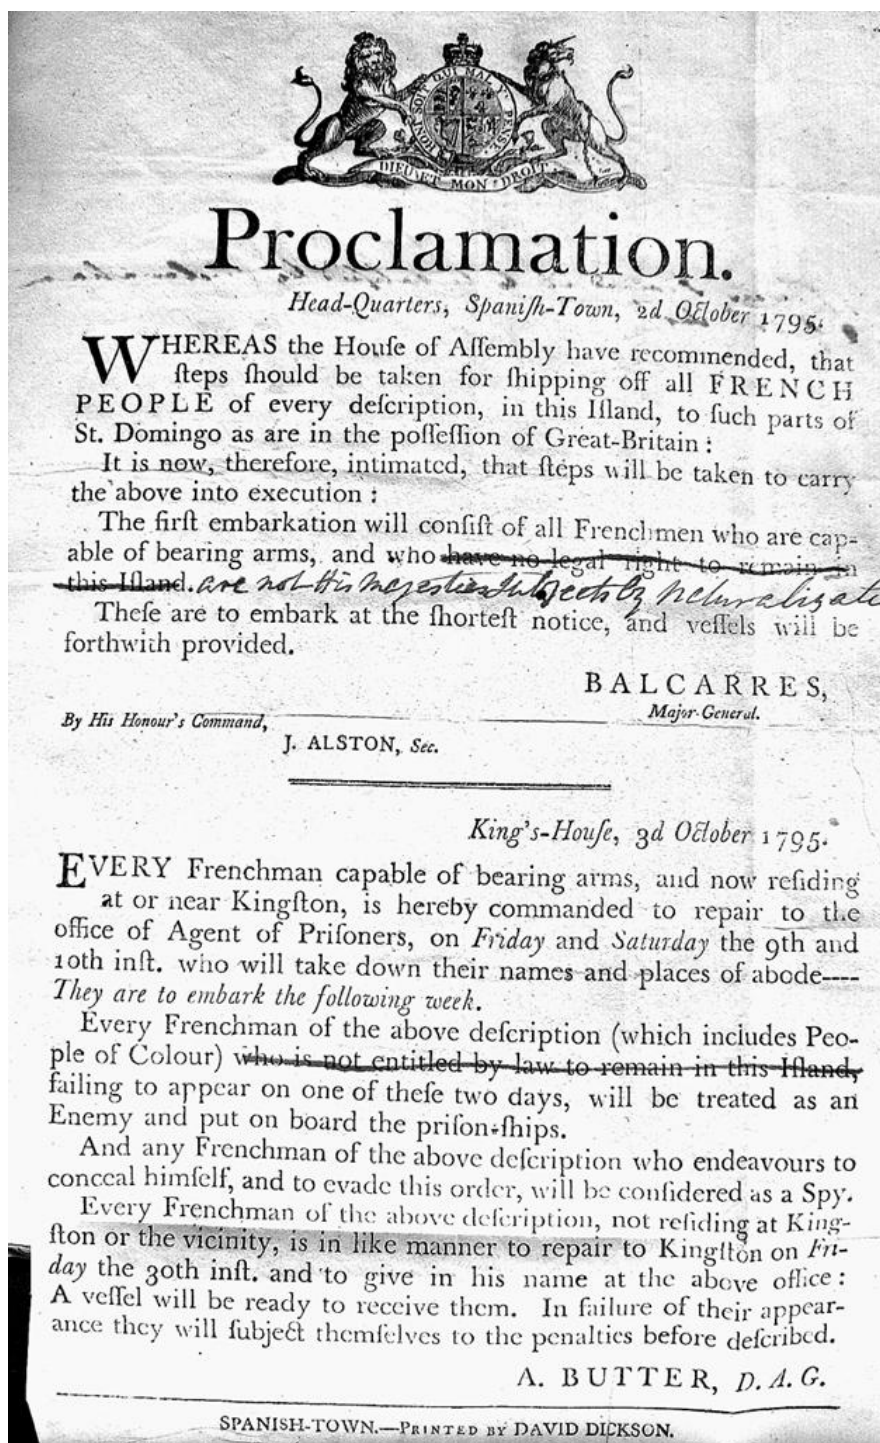 HONI SOIT QUI MAL Y PENSE
DIEU ET MON DROIT
Proclamation.
Head-Quarters, Spaniſh-Town, 2d October 1795.
WHEREAS the Houſe of Aſſembly have recommended, that
ſteps ſhould be taken for ſhipping off all FRENCH
PEOPLE of every deſcription, in this Iſland, to ſuch parts of
St. Domingo as are in the poſſeſſion of Great-Britain :
It is now, therefore, intimated, that ſteps will be taken to carry
the above into execution :
The firſt embarkation will conſiſt of all Frenchmen who are cap-
able of bearing arms, and who have no legal right to remain in
this Iſland. are not His Majesties Subjects by Naturalizati
Theſe are to embark at the ſhorteſt notice, and veſſels will be
forthwith provided.
BALCARRES,
Major-General.
By His Honour's Command,
J. ALSTON, Sec.
King's-Houſe, 3d October 1795.
EVERY Frenchman capable of bearing arms, and now reſiding
at or near Kingſton, is hereby commanded to repair to the
office of Agent of Priſoners, on Friday and Saturday the 9th and
10th inſt. who will take down their names and places of abode----
They are to embark the following week.
Every Frenchman of the above deſcription (which includes Peo-
ple of Colour) who is not entitled by law to remain in this Iſland,
failing to appear on one of theſe two days, will be treated as an
Enemy and put on board the priſon-ſhips.
And any Frenchman of the above deſcription who endeavours to
conceal himſelf, and to evade this order, will be conſidered as a Spy.
Every Frenchman of the above deſcription, not reſiding at King-
ſton or the vicinity, is in like manner to repair to Kingſton on Fri-
day the 30th inſt. and to give in his name at the above office :
A veſſel will be ready to receive them. In failure of their appear-
ance they will ſubject themſelves to the penalties before deſcribed.
A. BUTTER, D. A. G.
SPANISH-TOWN.—PRINTED BY DAVID DICKSON.